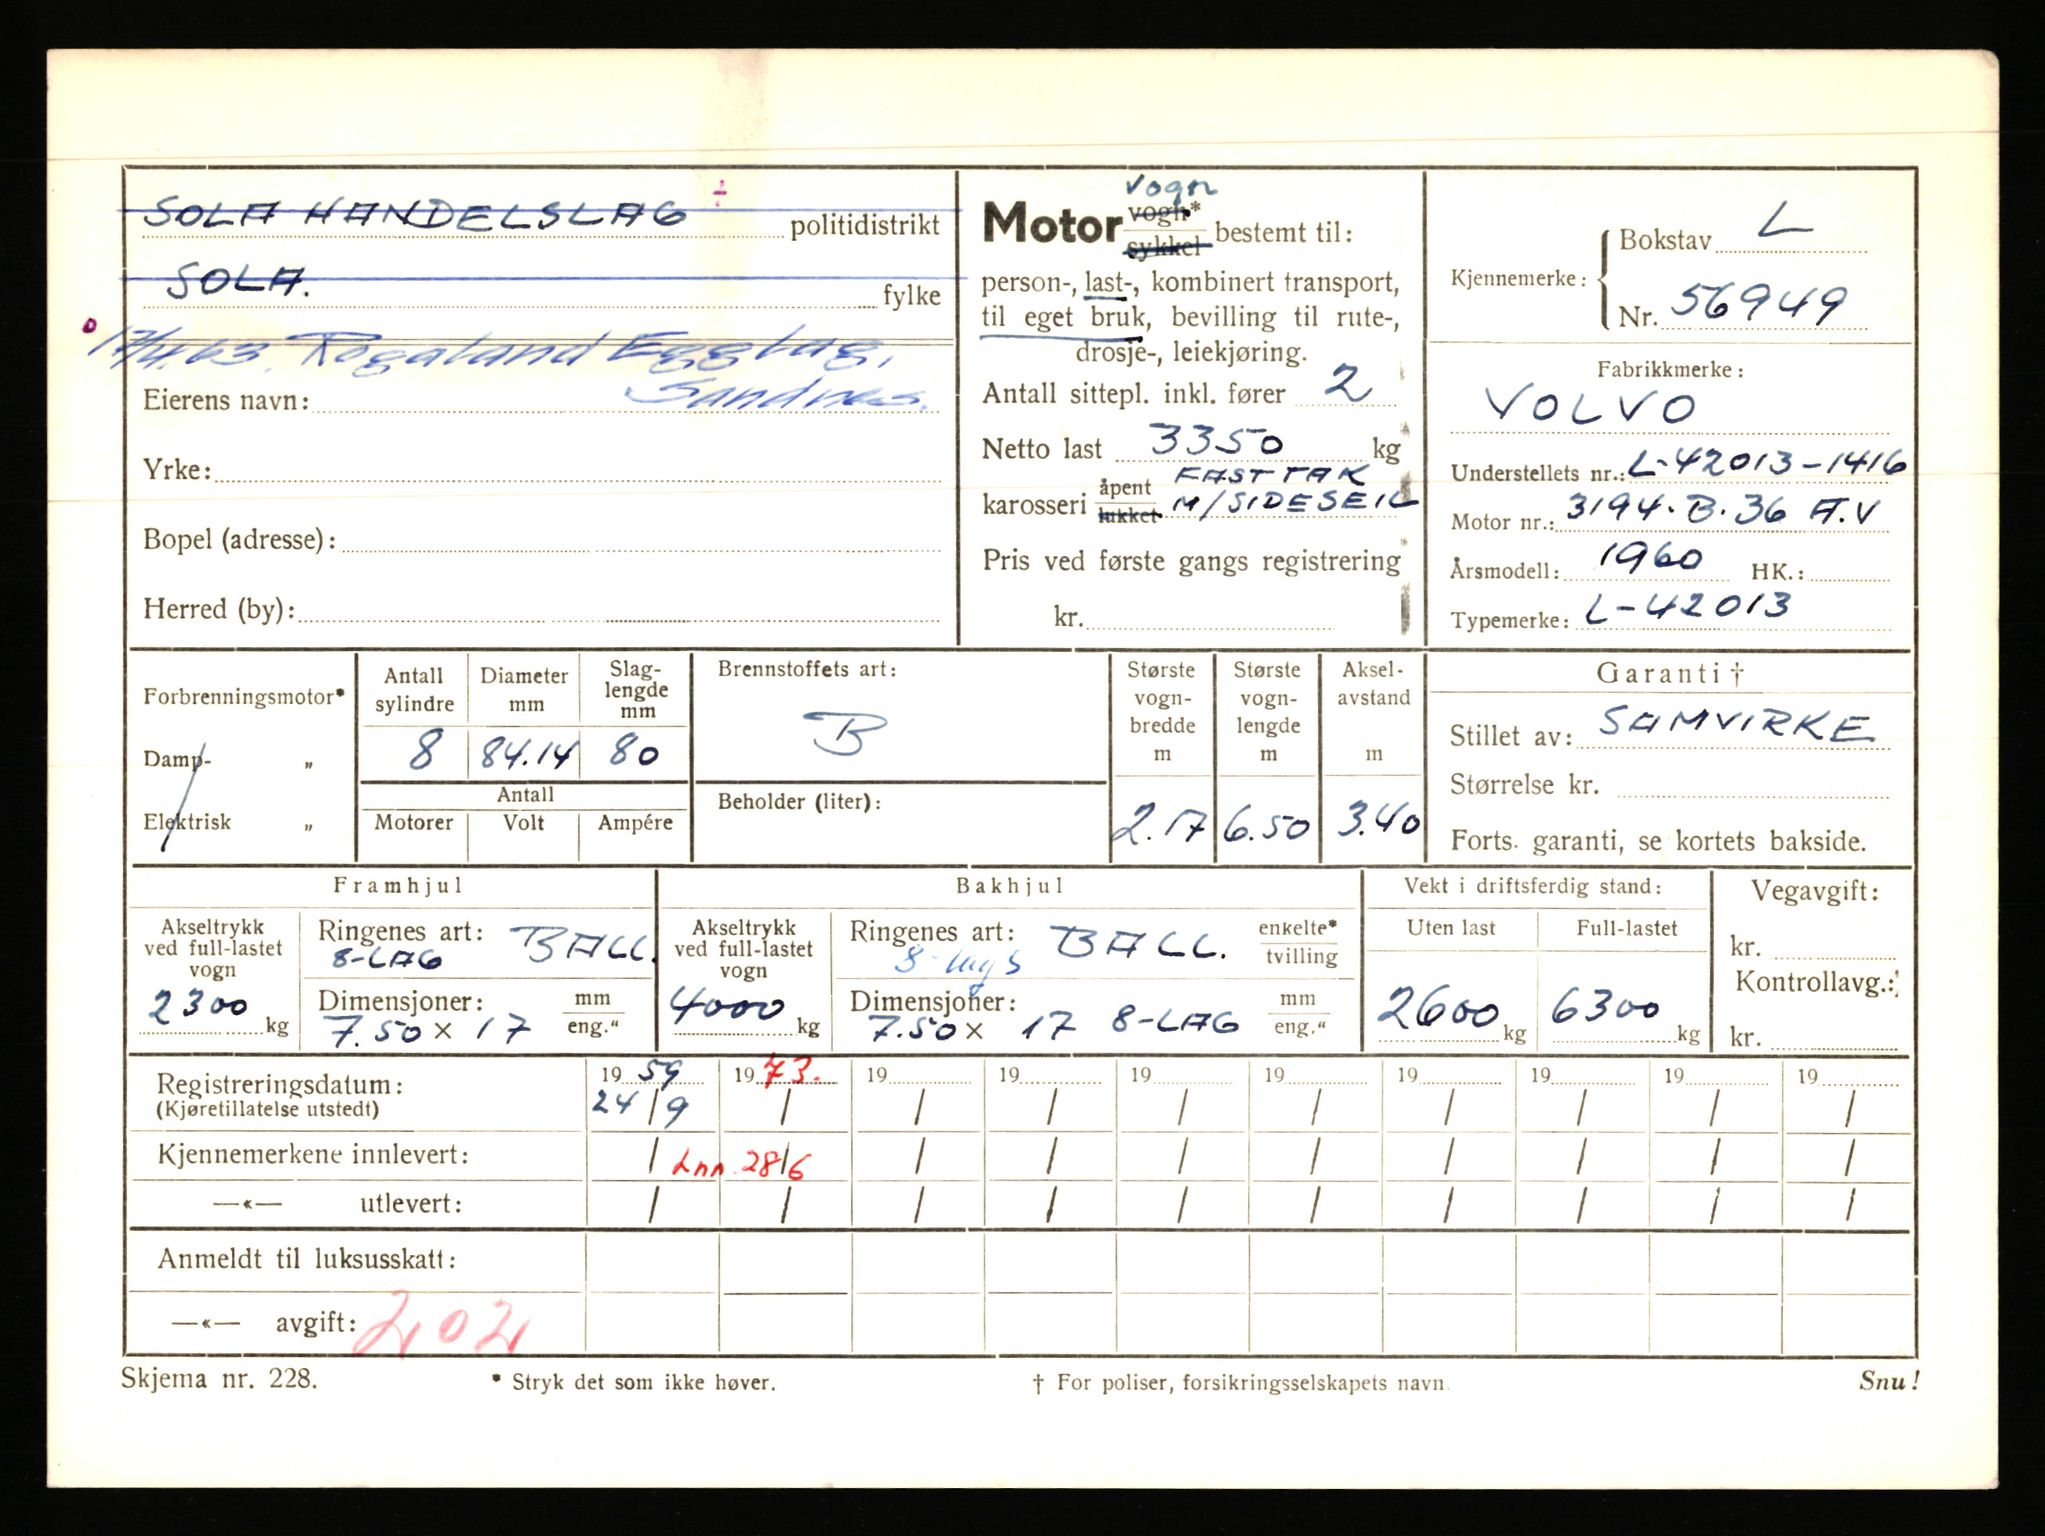 SOLA HANDELSLAG ÷ politidistrikt
SOLA. fylke
17/4.63. Rogaland Egglag,
Sandnes.
Eierens navn:
Yrke:
Bopel (adresse):
Herred (by):
vogn
Motor vogn* sykkel bestemt til:
person-, last-, kombinert transport,
til eget bruk, bevilling til rute-,
drosje-, leiekjøring.
Antall sittepl. inkl. fører 2
Netto last 3350 kg
karosseri åpent lukket FAST TAK
M/SIDESEIL
Pris ved første gangs registrering
kr.
Kjennemerke: Bokstav L
Nr. 56949
Fabrikkmerke:
VOLVO
Understellets nr.: L-42013-1416
Motor nr.: 3194.B.36 A.V
Årsmodell: 1960 HK.:
Typemerke: L-42013
Forbrenningsmotor*
Damp- „
Elektrisk „
Antall sylindre
Diameter mm
Slag-lengde mm
8 84.14 80
Antall
Motorer Volt Ampére
Brennstoffets art:
B
Beholder (liter):
Største vogn-bredde m
2.17
Største vogn-lengde m
6.50
Aksel-avstand m
3.40
Garanti †
Stillet av: SAMVIRKE
Størrelse kr.
Forts. garanti, se kortets bakside.
Framhjul
Akseltrykk ved full-lastet vogn
2300 kg
Ringenes art: BALL.
8-LAG
Dimensjoner: mm
7.50 x 17 eng."
Bakhjul
Akseltrykk ved full-lastet vogn
4000 kg
Ringenes art: BALL. enkelte* tvilling
8-lags
Dimensjoner: mm
7.50 x 17 8-LAG eng."
Vekt i driftsferdig stand:
Uten last Full-lastet
2600 kg 6300 kg
Vegavgift:
kr.
Kontrollavg.:
kr.
Registreringsdatum: 19 59 19 73. 19 19 19 19 19 19 19 19
(Kjøretillatelse utstedt) 24/9 / / / / / / / / /
Kjennemerkene innlevert: / Inn. 28/6 / / / / / / / /
—«— utlevert: / / / / / / / / / /
Anmeldt til luksusskatt:
—«— avgift: 202
Skjema nr. 228. * Stryk det som ikke høver. † For poliser, forsikringsselskapets navn. Snu!